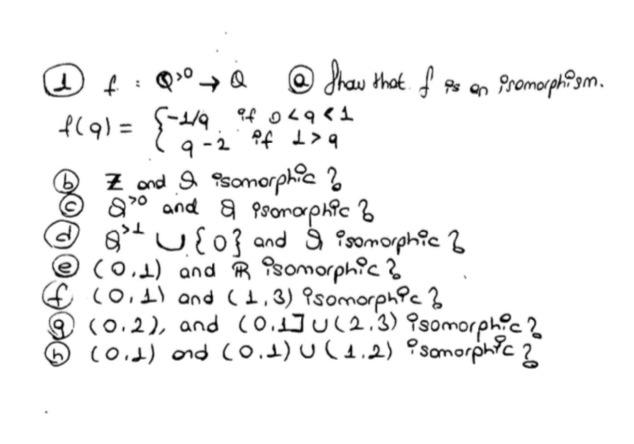 ① f : Q^>0 → Q ⓐ Show that f is an isomorphism.
f(q) = { -1/q if 0<q<1
q-2 if 1>q
ⓑ Z and Q isomorphic ?
ⓒ Q^>0 and Q isomorphic ?
ⓓ Q^>1 ∪ {0} and Q isomorphic ?
ⓔ (0,1) and R isomorphic ?
ⓕ (0,1) and (1,3) isomorphic ?
ⓖ (0,2), and (0,1] ∪ (2,3) isomorphic ?
ⓗ (0,1) and (0,1) ∪ (1,2) isomorphic ?